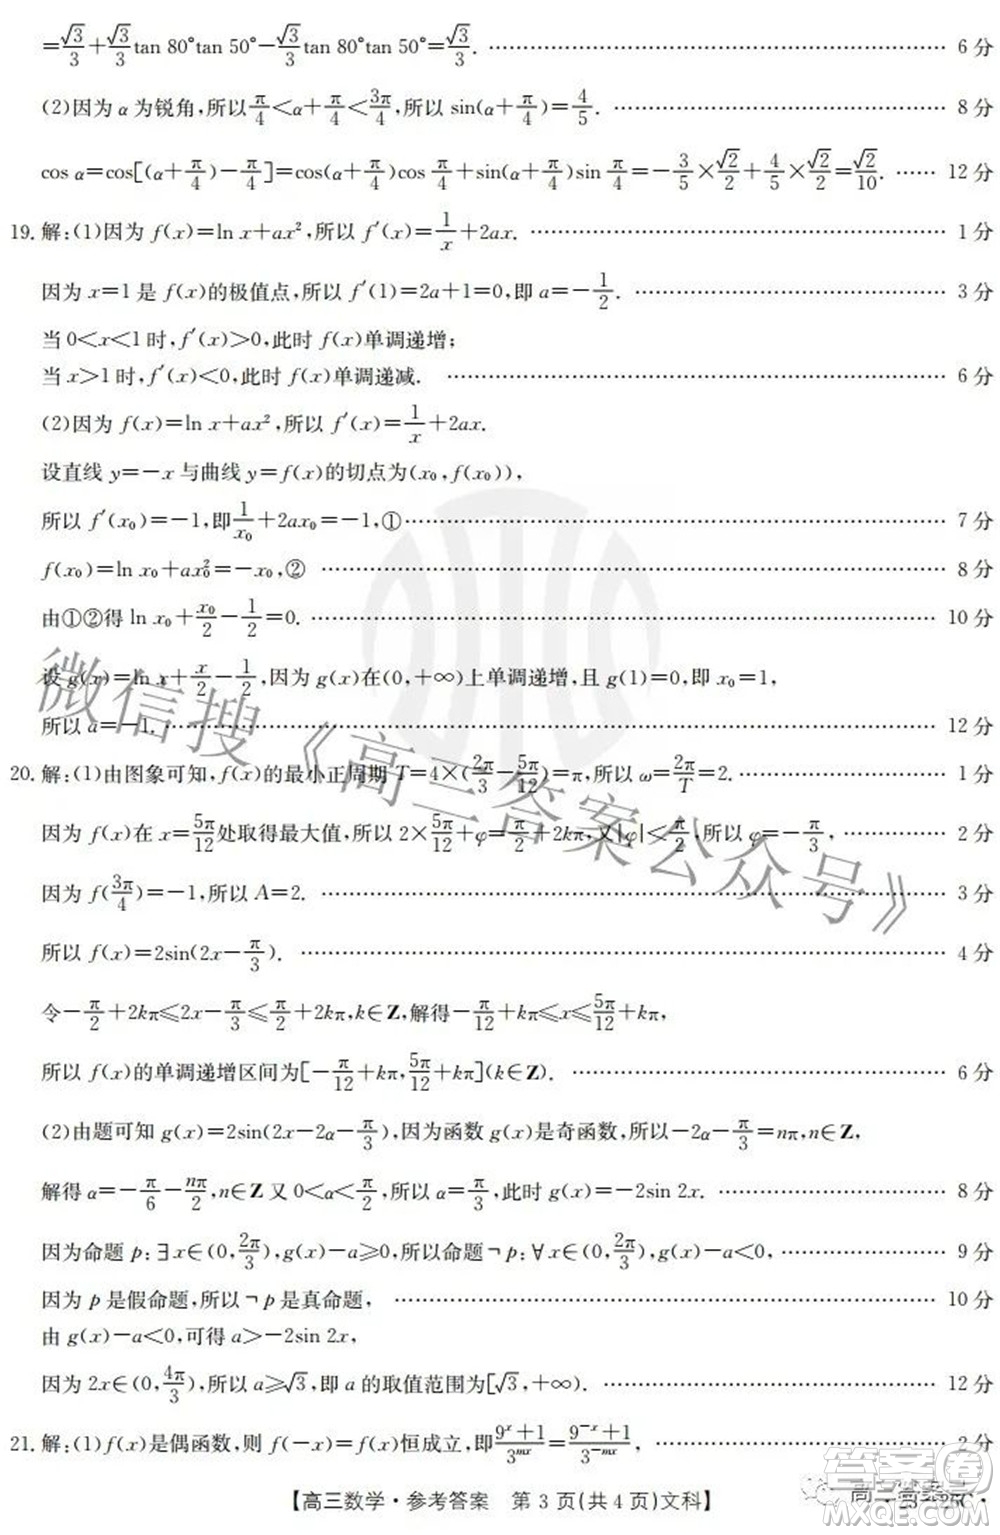 =√3/3+√3/3tan 80°tan 50°-√3/3tan 80°tan 50°=√3/3. …… 6分
(2)因为α为锐角,所以π/4<α+π/4<3π/4,所以 sin(α+π/4)=4/5. …… 8分
cos α=cos[(α+π/4)-π/4]=cos(α+π/4)cos π/4+sin(α+π/4)sin π/4=-3/5×√2/2+4/5×√2/2=√2/10. …… 12分
19. 解:(1)因为 f(x)=ln x+ax²,所以 f′(x)=1/x+2ax. …… 1分
因为 x=1 是 f(x)的极值点,所以 f′(1)=2a+1=0,即 a=-1/2. …… 3分
当 0<x<1 时,f′(x)>0,此时 f(x)单调递增;
当 x>1 时,f′(x)<0,此时 f(x)单调递减. …… 6分
(2)因为 f(x)=ln x+ax²,所以 f′(x)=1/x+2ax.
设直线 y=-x 与曲线 y=f(x)的切点为(x₀,f(x₀)),
所以 f′(x₀)=-1,即1/x₀+2ax₀=-1,① …… 7分
f(x₀)=ln x₀+ax₀²=-x₀,② …… 8分
由①②得 ln x₀+x₀/2-1/2=0. …… 10分
设 g(x)=ln x+x/2-1/2,因为 g(x)在(0,+∞)上单调递增,且 g(1)=0,即 x₀=1,
所以 a=-1. …… 12分
20. 解:(1)由图象可知,f(x)的最小正周期 T=4×(2π/3-5π/12)=π,所以 ω=2π/T=2. …… 1分
因为 f(x)在 x=5π/12处取得最大值,所以 2×5π/12+φ=π/2+2kπ,又|φ|<π/2,所以 φ=-π/3, …… 2分
因为 f(3π/4)=-1,所以 A=2. …… 3分
所以 f(x)=2sin(2x-π/3). …… 4分
令-π/2+2kπ≤2x-π/3≤π/2+2kπ,k∈Z,解得-π/12+kπ≤x≤5π/12+kπ,
所以 f(x)的单调递增区间为[-π/12+kπ,5π/12+kπ](k∈Z). …… 6分
(2)由题可知 g(x)=2sin(2x-2α-π/3),因为函数 g(x)是奇函数,所以-2α-π/3=nπ,n∈Z,
解得 α=-π/6-nπ/2,n∈Z 又 0<α<π/2,所以 α=π/3,此时 g(x)=-2sin 2x. …… 8分
因为命题 p:∃x∈(0,2π/3),g(x)-a≥0,所以命题¬p:∀x∈(0,2π/3),g(x)-a<0, …… 9分
因为 p 是假命题,所以¬p 是真命题, …… 10分
由 g(x)-a<0,可得 a>-2sin 2x,
因为 2x∈(0,4π/3),所以 a≥√3,即 a 的取值范围为[√3,+∞). …… 12分
21. 解:(1)f(x)是偶函数,则 f(-x)=f(x)恒成立,即(9ˣ+1)/3ᵐˣ=(9⁻ˣ+1)/3⁻ᵐˣ, …… 2分
【高三数学·参考答案 第 3 页(共 4 页)文科】
微信搜《高三答案公众号》
答案圈